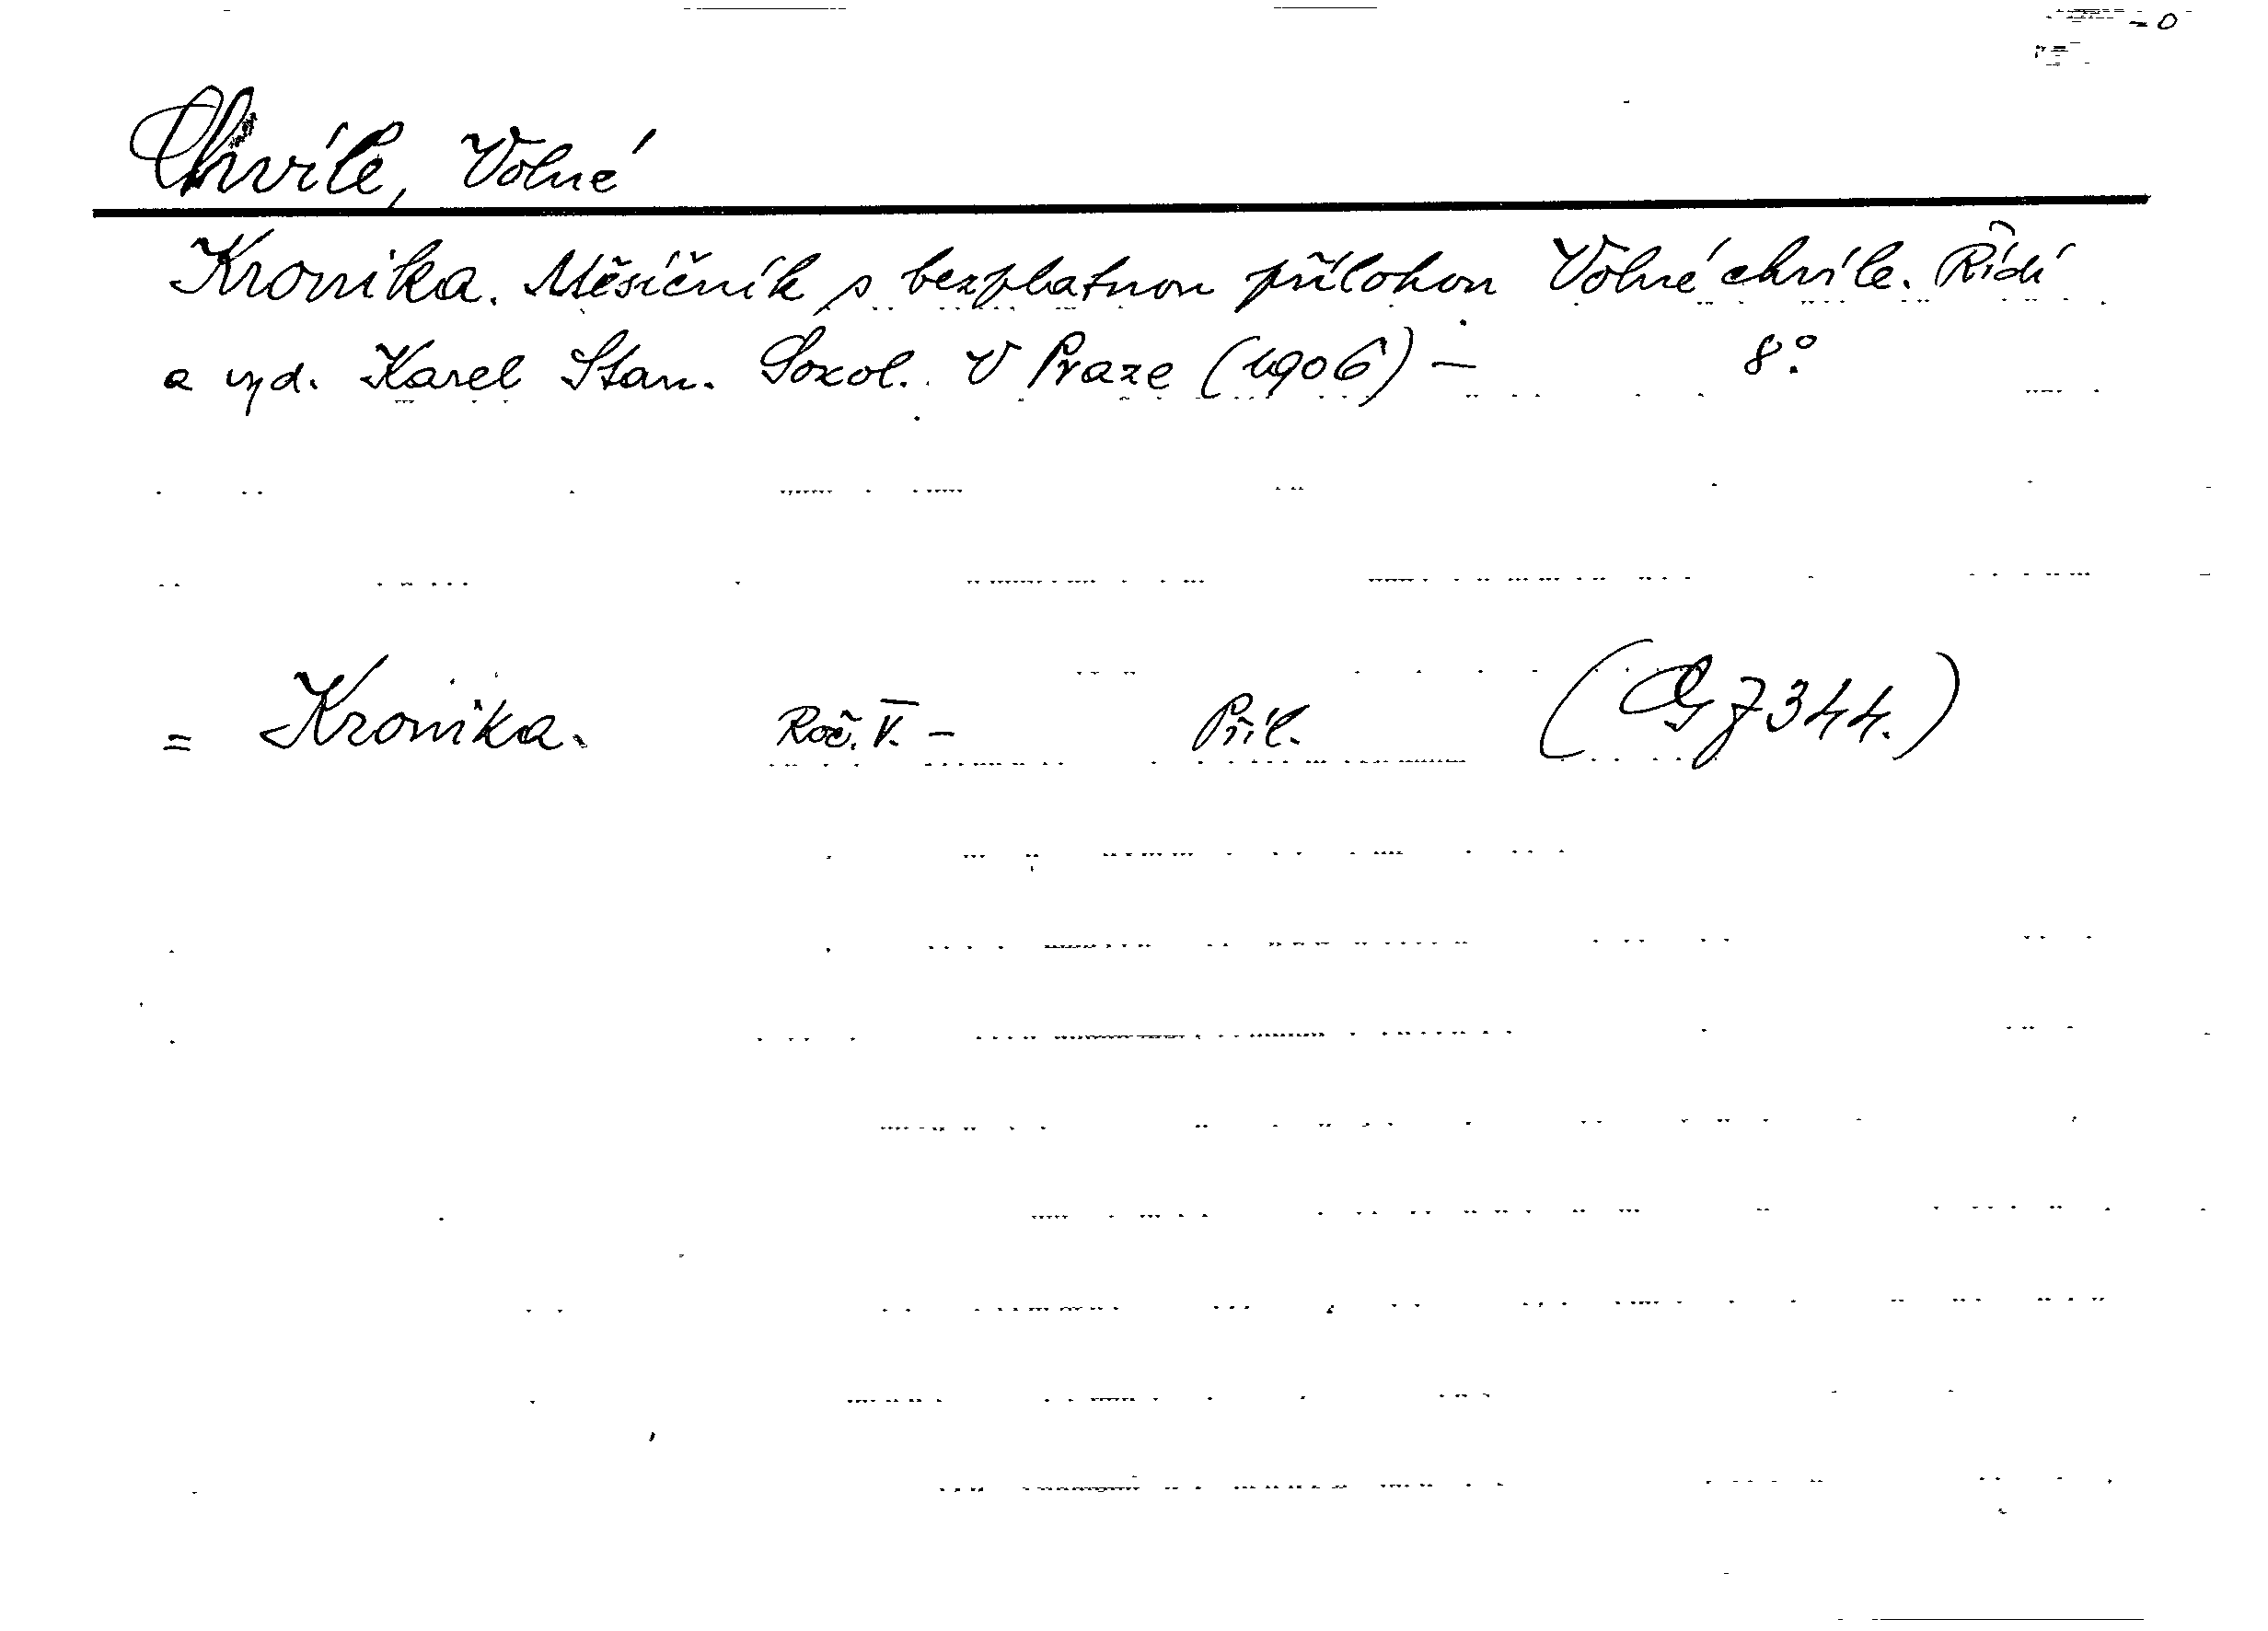 Chvíle, Volné
Kronika. Měsíčník s bezplatnou přílohou Volné chvíle. Řídí
a vyd. Karel Stan. Sokol. V Praze (1906) – 8°.
= Kronika. Roč. V. – Příl. (G 7344.)